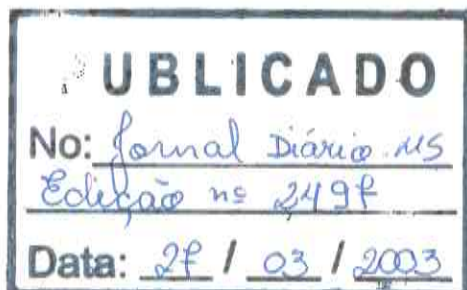 PUBLICADO
No: Jornal Diário MS
Edição nº 2497
Data: 27 / 03 / 2003